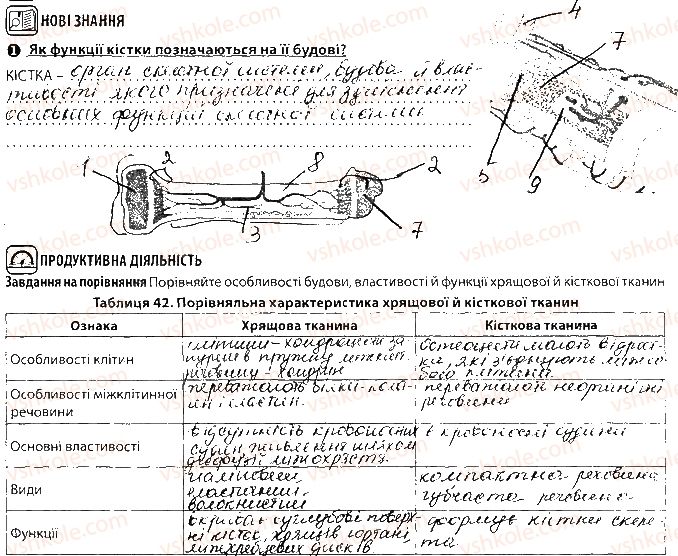 НОВІ ЗНАННЯ
1 Як функції кістки позначаються на її будові?
КІСТКА – орган скелетної системи, будова й влас-
тивості якого призначені для здійснення
основних функцій скелетної системи
4
7
5
9
1
2
8
2
3
7
ПРОДУКТИВНА ДІЯЛЬНІСТЬ
Завдання на порівняння Порівняйте особливості будови, властивості й функції хрящової й кісткової тканин
Таблиця 42. Порівняльна характеристика хрящової й кісткової тканин
Ознака Хрящова тканина Кісткова тканина
Особливості клітин
клітини - хондроцити за
в пружну міжкліт.
речовину - хондрин
остеоцити мають відрост-
ки, які з'єднують між со-
бою клітини
Особливості міжклітинної речовини
переважають білки - колаг-
ин і еластин.
переважають неорганічні
речовини
Основні властивості
відсутність кровоносних
судин живлення шляхом
дифузії
є кровоносні судини
Види
гіаліновий
еластичний
волокнистий
компактна речовина
губчаста речовина
Функції
суглобові поверх-
ні кісток, хрящів гортані
міжхребцевих дисків
формує кістки скеле-
та
vshkole.com
vshkole.com
vshkole.com
vshkole.com
vshkole.com
vshkole.com